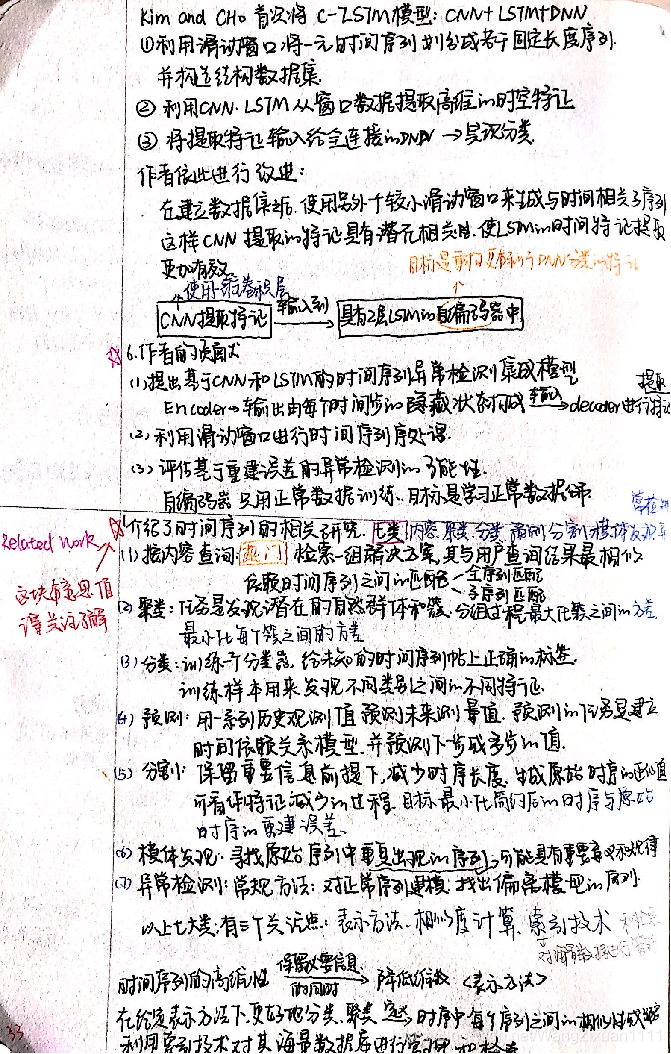 Kim and CHo 首次将 C-LSTM模型: CNN+LSTM+DNN
①利用滑动窗口将一元时间序列划分成若干固定长度序列.
并构造结构数据集
② 利用CNN. LSTM 从窗口数据提取高维的时空特征
③ 将提取特征输入给全连接的DNN → 实现分类
作者依此进行改进:
在建立数据集之后. 使用另外个较小滑动窗口来生成与时间相关子序列
这样CNN 提取的特征具有潜在相关性. 使LSTM的时间特征提取
更加有效.
目标是更有利于DNN分类的特征
使用一维卷积层
CNN提取特征 输入到 具有2层LSTM的自编码器中
6.作者的贡献
(1)提出基于CNN和LSTM的时间序列异常检测集成模型
Encoder → 输出由每个时间步的隐藏状态构成 输入 decoder进行特征
提取
(2) 利用滑动窗口进行时间序列预处理.
(3) 评估基于重建误差的异常检测的可能性.
自编码器 只用正常数据训练. 目标是学习正常数据
Related work
这块有意思值
得关注了解
介绍了时间序列的相关研究. 七类 内容. 聚类. 分类. 预测 分割. 模体发现
(1) 按内容查询: 热门 检索一组解决方案, 其与用户查询结果最相似
依赖时间序列之间的匹配 全序列匹配
子序列匹配
(2) 聚类: 任务是发现潜在的自然群体和簇. 分组过程最大化簇之间的方差
最小化每个簇之间的方差
(3) 分类: 训练一个分类器. 给未知的时间序列帖上正确的标签.
训练样本用来发现不同类别之间的不同特征.
(4) 预测: 用一系列历史观测值预测未来测量值. 预测的任务是建立
时间依赖关系模型. 并预测下一步或多步的值.
(5) 分割: 保留重要信息前提下, 减少时序长度. 生成原始时序的近似值
可看作特征减少的过程. 目标最小化简约后的时序与原始
时序的重建误差.
(6) 模体发现: 寻找原始序列中重复出现的序列, 可能具有重要意义
(7) 异常检测: 常规方法: 对正常序列建模. 找出偏离模型的序列
以上七大类. 有三个关注点: 表示方法. 相似度计算. 索引技术
时间序列的高维性 保留必要信息的同时 降低维数 <表示方法>
在给定表示方法下. 更好地分类. 聚类 时序中每个序列之间的相似性
利用索引技术对其海量数据库进行管理和检查
33